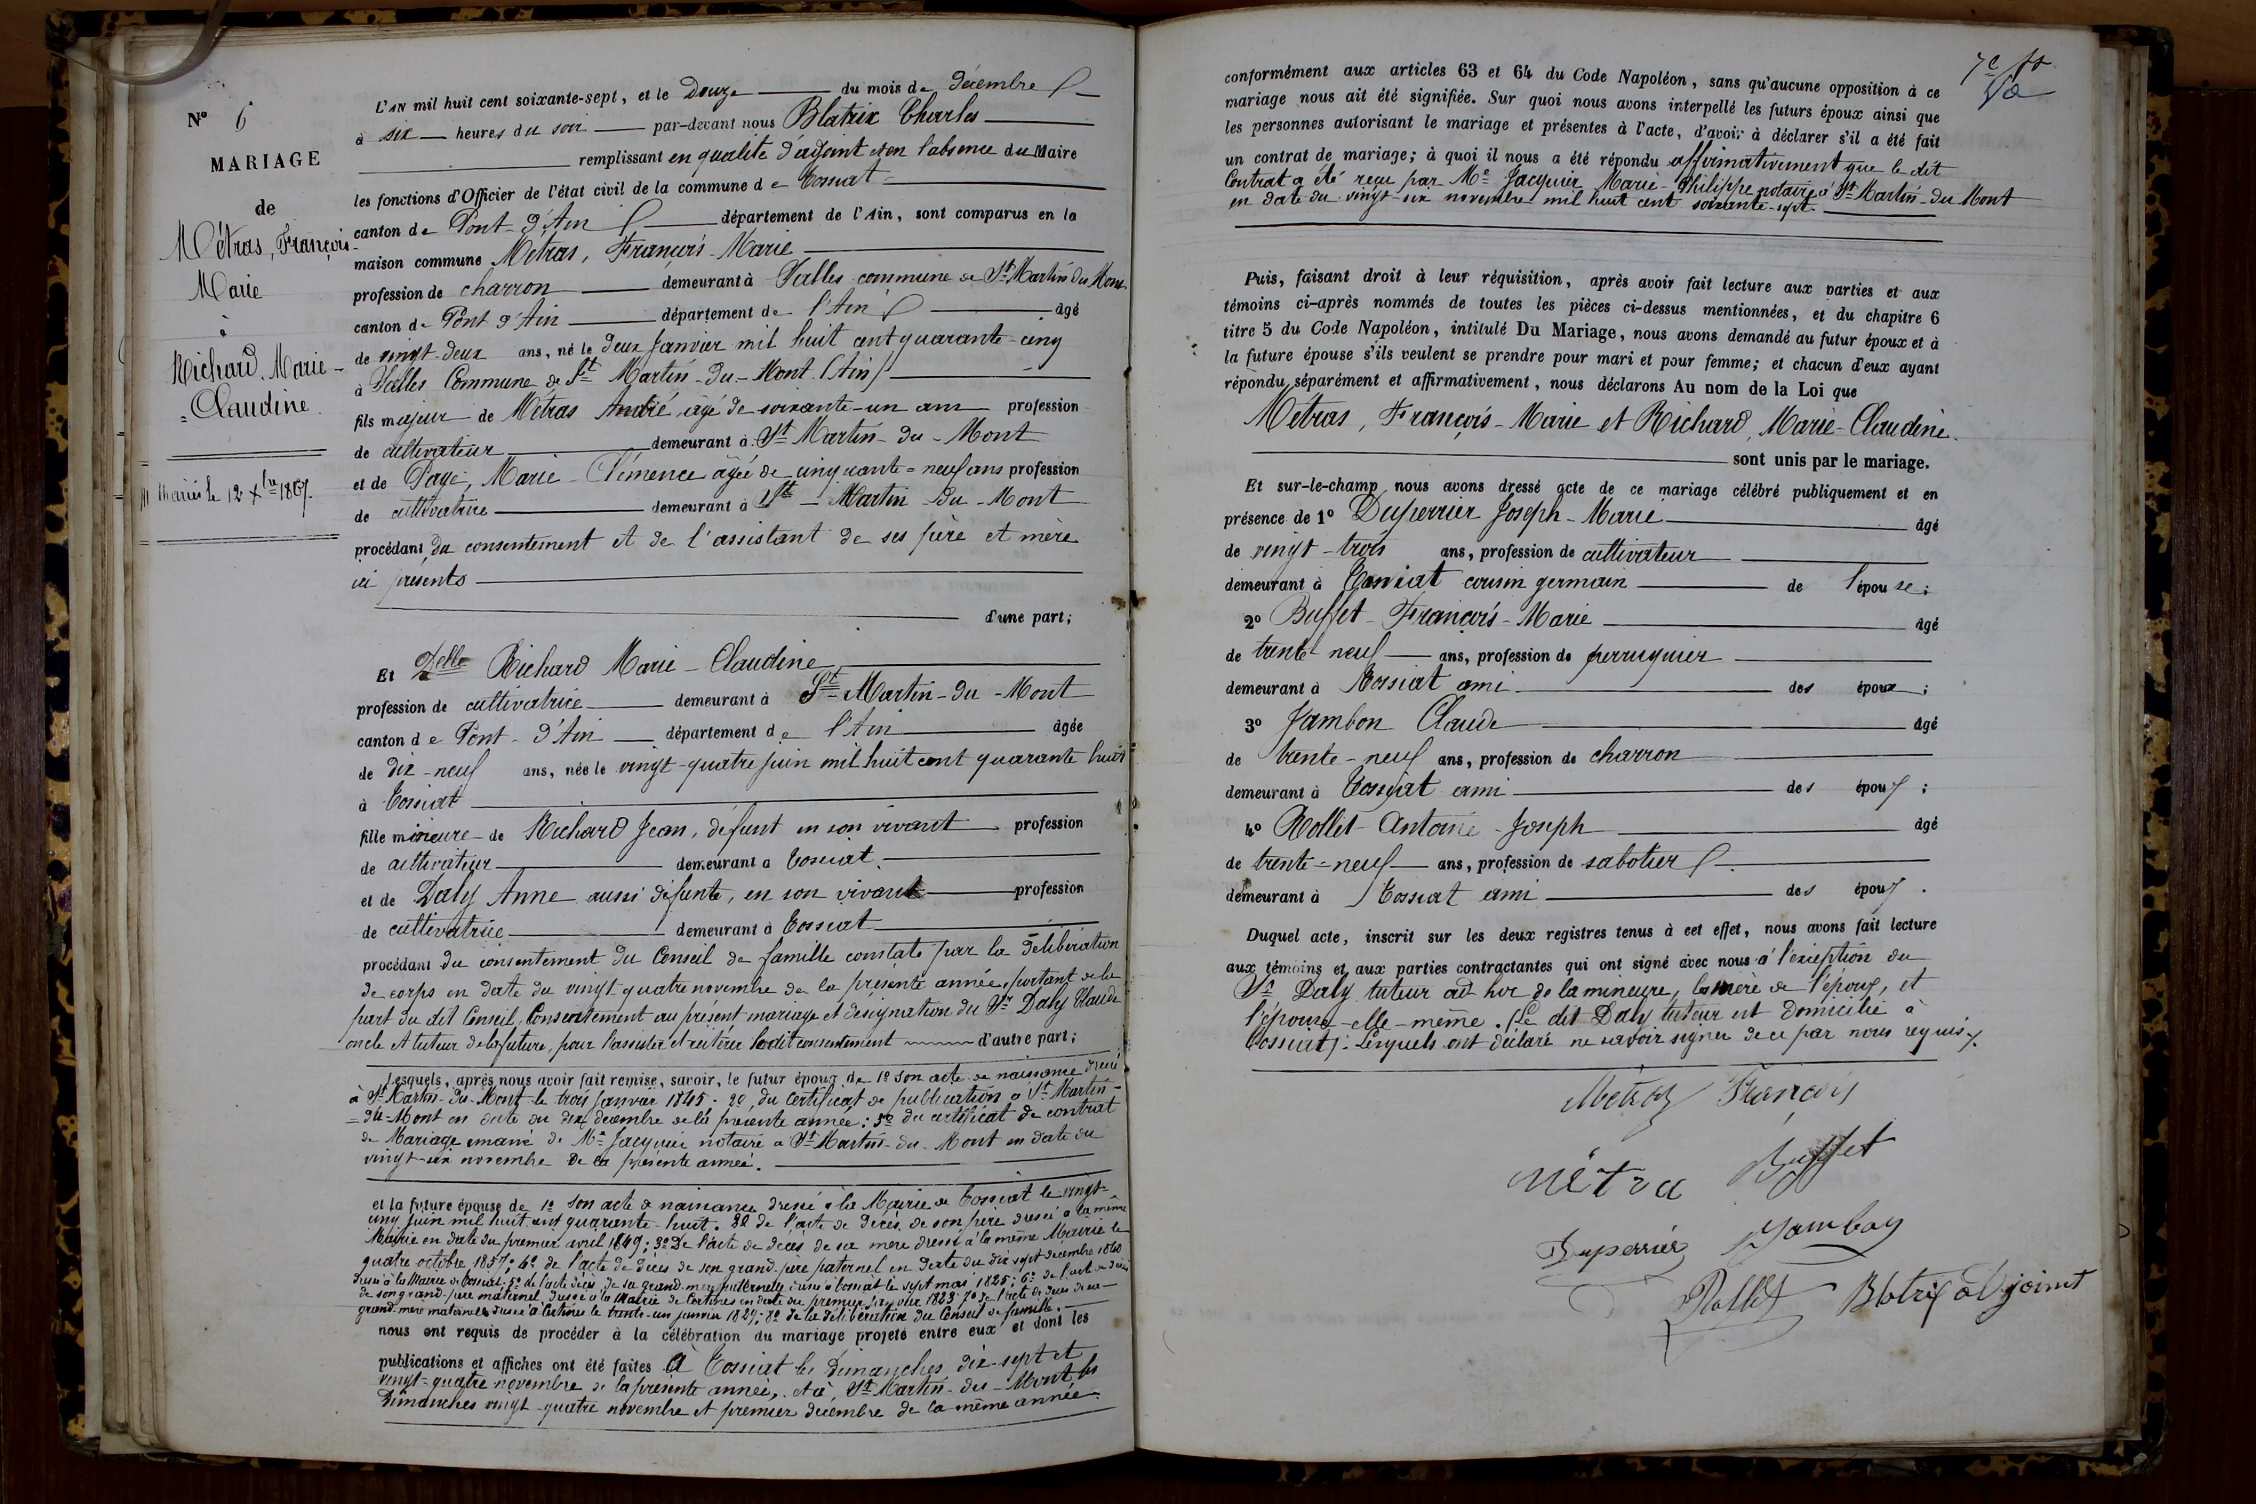 N° 6
MARIAGE
de
Métras, François-
Marie
à
Richard, Marie-
=Claudine.
Mariés le 12 Xbre 1867.
L'AN mil huit cent soixante-sept, et le Douze du mois de Décembre
à six heures du soir par-devant nous Blatrix Charles
remplissant en qualité d'adjoint et en l'absence du Maire
les fonctions d'Officier de l'état civil de la commune de Tossiat
canton de Pont-d'Ain département de l'Ain, sont comparus en la
maison commune Métras, François-Marie
profession de charron demeurant à Salles commune de St Martin du Mont
canton de Pont d'Ain département de l'Ain âgé
de vingt-deux ans, né le deux Janvier mil huit cent quarante-cinq
à Salles Commune de St Martin-du-Mont (Ain)
fils majeur de Métras André, âgé de soixante-un ans profession
de cultivateur demeurant à St Martin-du-Mont
et de Page, Marie-Clémence âgée de cinquante-neuf ans profession
de cultivatrice demeurant à St-Martin-du-Mont
procédant du consentement et de l'assistant de ses père et mère
ici présents
d'une part;
Et Delle Richard Marie-Claudine
profession de cultivatrice demeurant à St-Martin-du-Mont
canton de Pont-d'Ain département de l'Ain âgée
de dix-neuf ans, née le vingt-quatre juin mil huit cent quarante huit
à Tossiat
fille mineure de Richard Jean, défunt en son vivant profession
de cultivateur demeurant à Tossiat
et de Daly Anne aussi défunte, en son vivant profession
de cultivatrice demeurant à Tossiat
procédant du consentement du Conseil de famille constaté par la délibération
de corps en date du vingt quatre novembre de la présente année, portant de la
part du dit Conseil, Consentement au présent mariage et désignation du Sr Daly Claude
oncle et tuteur de la future, pour l'assister et réitérer ledit consentement d'autre part;
Lesquels, après nous avoir fait remise, savoir, le futur époux de 1° Son acte de naissance dressé
à St Martin-du-Mont le trois Janvier 1845. 2°, du Certificat de publication à St Martin-
=du-Mont en date du dix décembre de la présente année: 3° du certificat de contrat
de Mariage émané de Me Jacquier notaire à St-Martin-du-Mont en date du
vingt-six novembre de la présente année.
et la future épouse de 1° Son acte de naissance dressé à la Mairie de Tossiat le vingt-
cinq juin mil huit cent quarante-huit. 2° de l'acte de décès de son père dressé à la même
Mairie en date du premier avril 1849; 3° De l'acte de décès de sa mère dressé à la même Mairie le
quatre octobre 1857; 4° de l'acte de décès de son grand-père paternel en date du dix sept décembre 1860
dressé à la Mairie de Tossiat; 5° de l'acte décès de sa grand-mère paternelle dressé à Tossiat le sept mai 1825; 6° de l'acte de décès
de son grand-père maternel, dressé à la Mairie de Certines en date du premier Janvier 1823 7° de l'acte de décès de sa
grand-mère maternelle dressé à Certines le trente-un janvier 1827; 8° de la délibération du Conseil de famille.
nous ont requis de procéder à la célébration du mariage projeté entre eux et dont les
publications et affiches ont été faites à Tossiat les Dimanches dix-sept et
vingt-quatre novembre de la présente année, et à St Martin-du-Mont les
Dimanches vingt-quatre novembre et premier décembre de la même année.
7e fo
conformément aux articles 63 et 64 du Code Napoléon, sans qu'aucune opposition à ce
mariage nous ait été signifiée. Sur quoi nous avons interpellé les futurs époux ainsi que
les personnes autorisant le mariage et présentes à l'acte, d'avoir à déclarer s'il a été fait
un contrat de mariage; à quoi il nous a été répondu affirmativement que le dit
Contrat a été reçu par Me Jacquier Marie-Philippe notaire à St-Martin-du Mont
en date du vingt-six novembre mil huit cent soixante-sept.
Puis, faisant droit à leur réquisition, après avoir fait lecture aux parties et aux
témoins ci-après nommés de toutes les pièces ci-dessus mentionnées, et du chapitre 6
titre 5 du Code Napoléon, intitulé Du Mariage, nous avons demandé au futur époux et à
la future épouse s'ils veulent se prendre pour mari et pour femme; et chacun d'eux ayant
répondu séparément et affirmativement, nous déclarons Au nom de la Loi que
Métras, François-Marie et Richard, Marie-Claudine.
sont unis par le mariage.
Et sur-le-champ nous avons dressé acte de ce mariage célébré publiquement et en
présence de 1° Duperrier Joseph-Marie âgé
de vingt-trois ans, profession de cultivateur
demeurant à Tossiat cousin germain de l'épouse;
2° Buffet-François-Marie âgé
de trente-neuf ans, profession de perruquier
demeurant à Tossiat ami des époux;
3° Jambon Claude âgé
de trente-neuf ans, profession de charron
demeurant à Tossiat ami des époux;
4° Rollet-Antoine-Joseph âgé
de trente-neuf ans, profession de sabotier
demeurant à Tossiat ami des époux.
Duquel acte, inscrit sur les deux registres tenus à cet effet, nous avons fait lecture
aux témoins et aux parties contractantes qui ont signé avec nous à l'exception du
Sr Daly tuteur ad hoc de la mineure, la mère de l'époux, et
l'épouse-elle-même. (Le dit Daly tuteur est domicilié à
Tossiat). Lesquels ont déclaré ne savoir signer de ce par nous requis.
Métras François
Métra Buffet
Duperrier Jambon
Rollet Blatrix adjoint